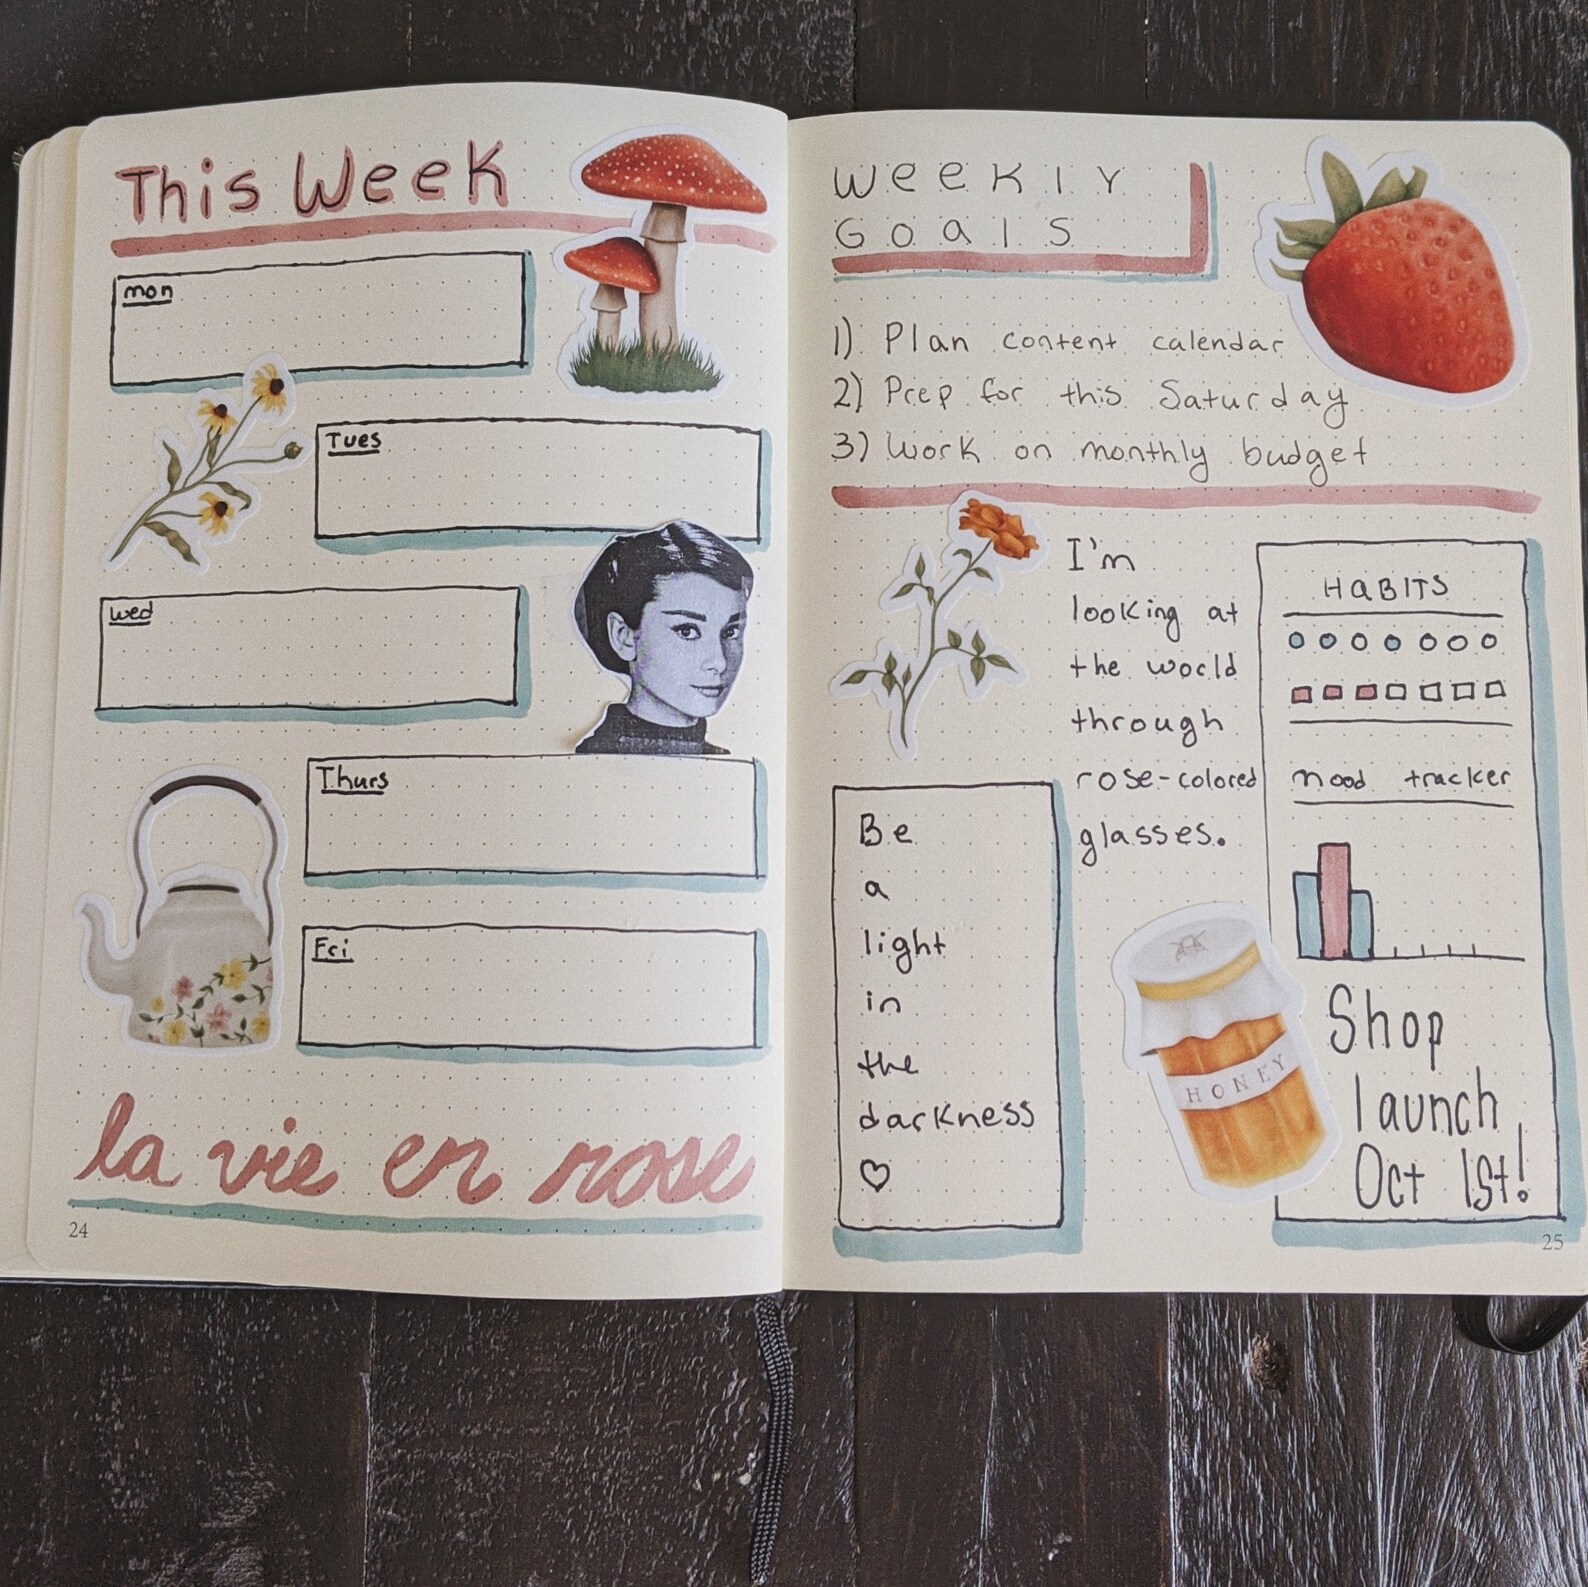 This Week
mon
Tues
wed
Thurs
Fri
la vie en rose
24
WeeKlY
GOalS
1) Plan content calendar
2) Prep for this Saturday
3) Work on monthly budget
I'm
looking at
the world
through
rose-colored
glasses.
Be
a
light
in
the
darkness
♡
HONEY
HABITS
mood tracker
Shop
launch
Oct 1st!
25